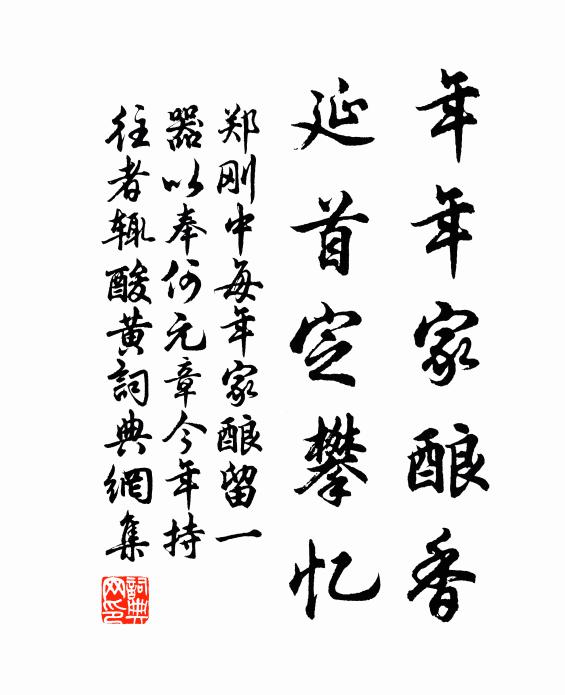 年年家酿香
延首定攀忆
郑刚中每年家酿留一
器以奉何元章今年持
往者辄酸黄詞典網集
詞典
网印